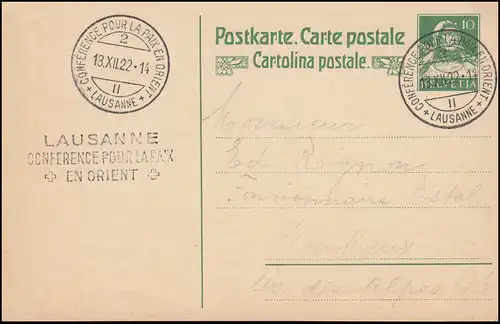 CONFÉRENCE POUR LA PAIX EN ORIENT
2
13.XII.22-14
II
+ LAUSANNE +
Postkarte. Carte postale
Cartolina postale.
10
HELVETIA
CONFÉRENCE POUR LA PAIX EN ORIENT
13.XII.22-14
II
+ LAUSANNE +
LAUSANNE
CONFERENCE POUR LA PAIX
EN ORIENT
Monsieur
Ed
Fonctionnaire Postal
Montreux
Av. des Alpes